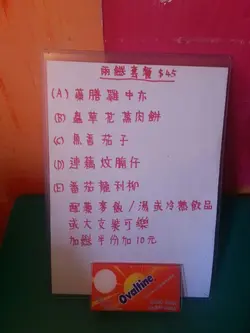 兩餸套餐 $45
(A) 藥膳雞中亦
(B) 蟲草花蒸肉餅
(C) 魚香茄子
(D) 連藕炆腩仔
(E) 番茄豬扒
配養享飯/湯或冷熱飲品
或大支裝可樂
加餸平份加10元
Ovaltine